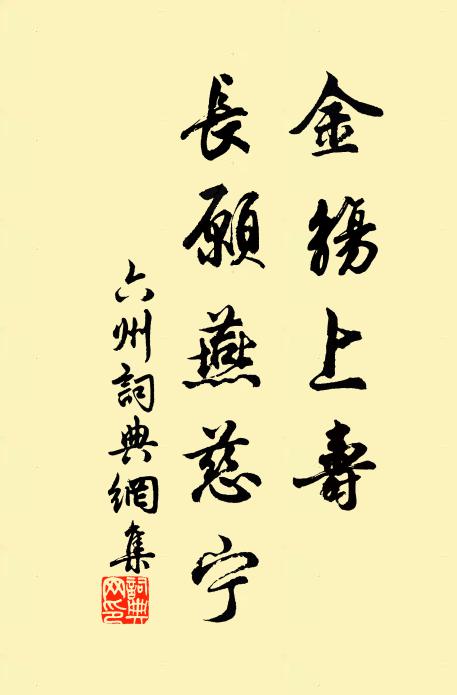 金觴上壽
長願燕慈宁
六州詞典網集
詞典
网印